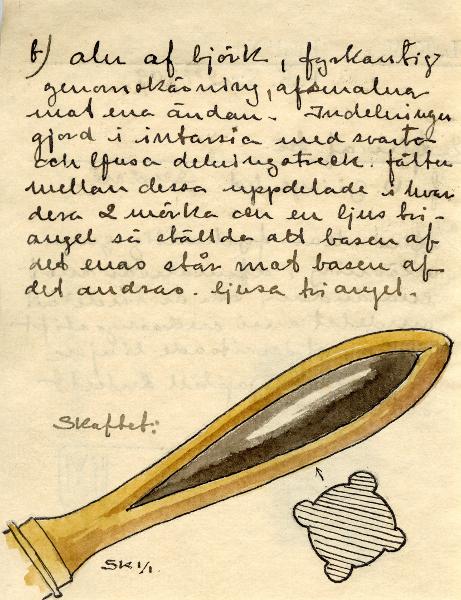 b) aln af björk, fyrkantig
genomskärning, afsmalnar
mot ena ändan. Indelningen
gjord i intarsia med svarta
och ljusa delningstreck. fälten
mellan dessa uppdelade i hvar
dera 2 mörka och en ljus tri-
angel så ställda att basen af
det enas står mot basen af
det andras. ljusa triangel.
Skaftet:
SK 1/1.